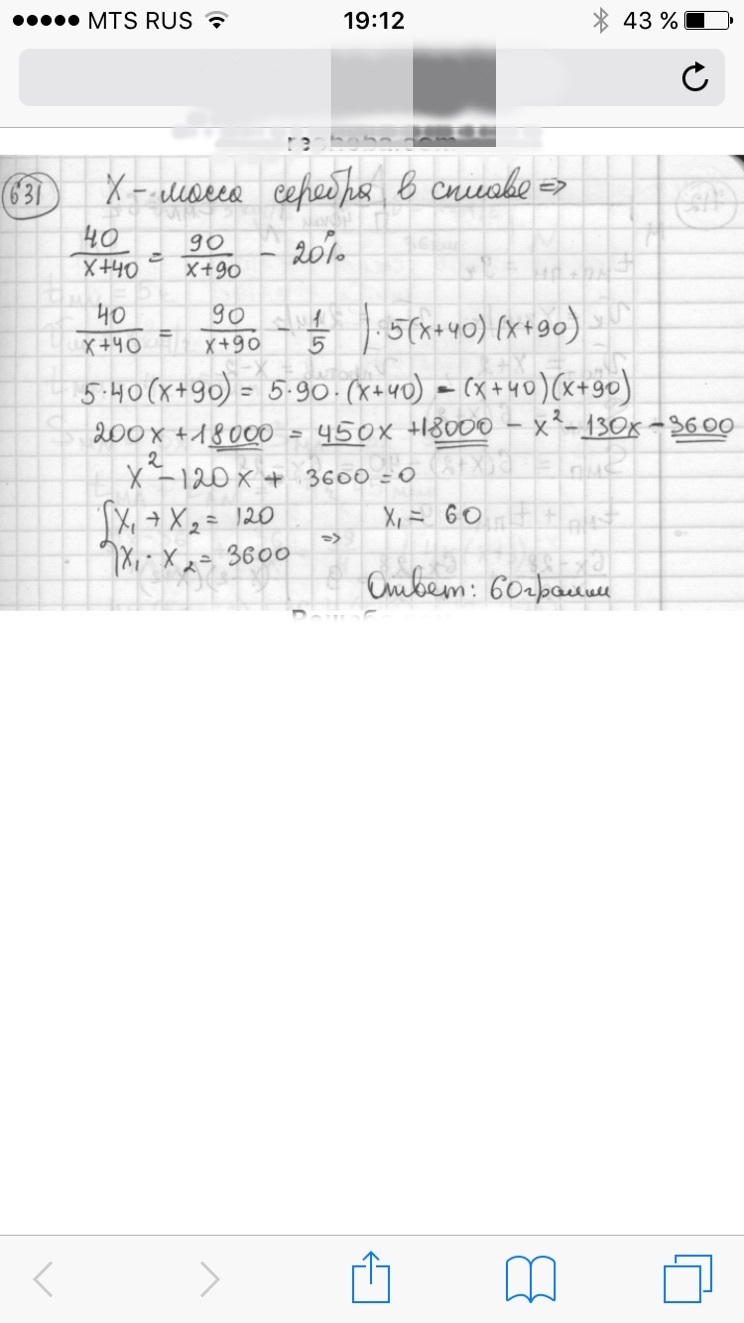 MTS RUS 19:12 43 %
631 X – масса серебра в сплаве =>
40/(x+40) = 90/(x+90) - 20%
40/(x+40) = 90/(x+90) - 1/5 | · 5(x+40)(x+90)
5·40(x+90) = 5·90·(x+40) - (x+40)(x+90)
200x + 18000 = 450x + 18000 - x² - 130x - 3600
x² - 120x + 3600 = 0
{ x₁ + x₂ = 120
x₁ · x₂ = 3600 => x₁ = 60
Ответ: 60 грамм